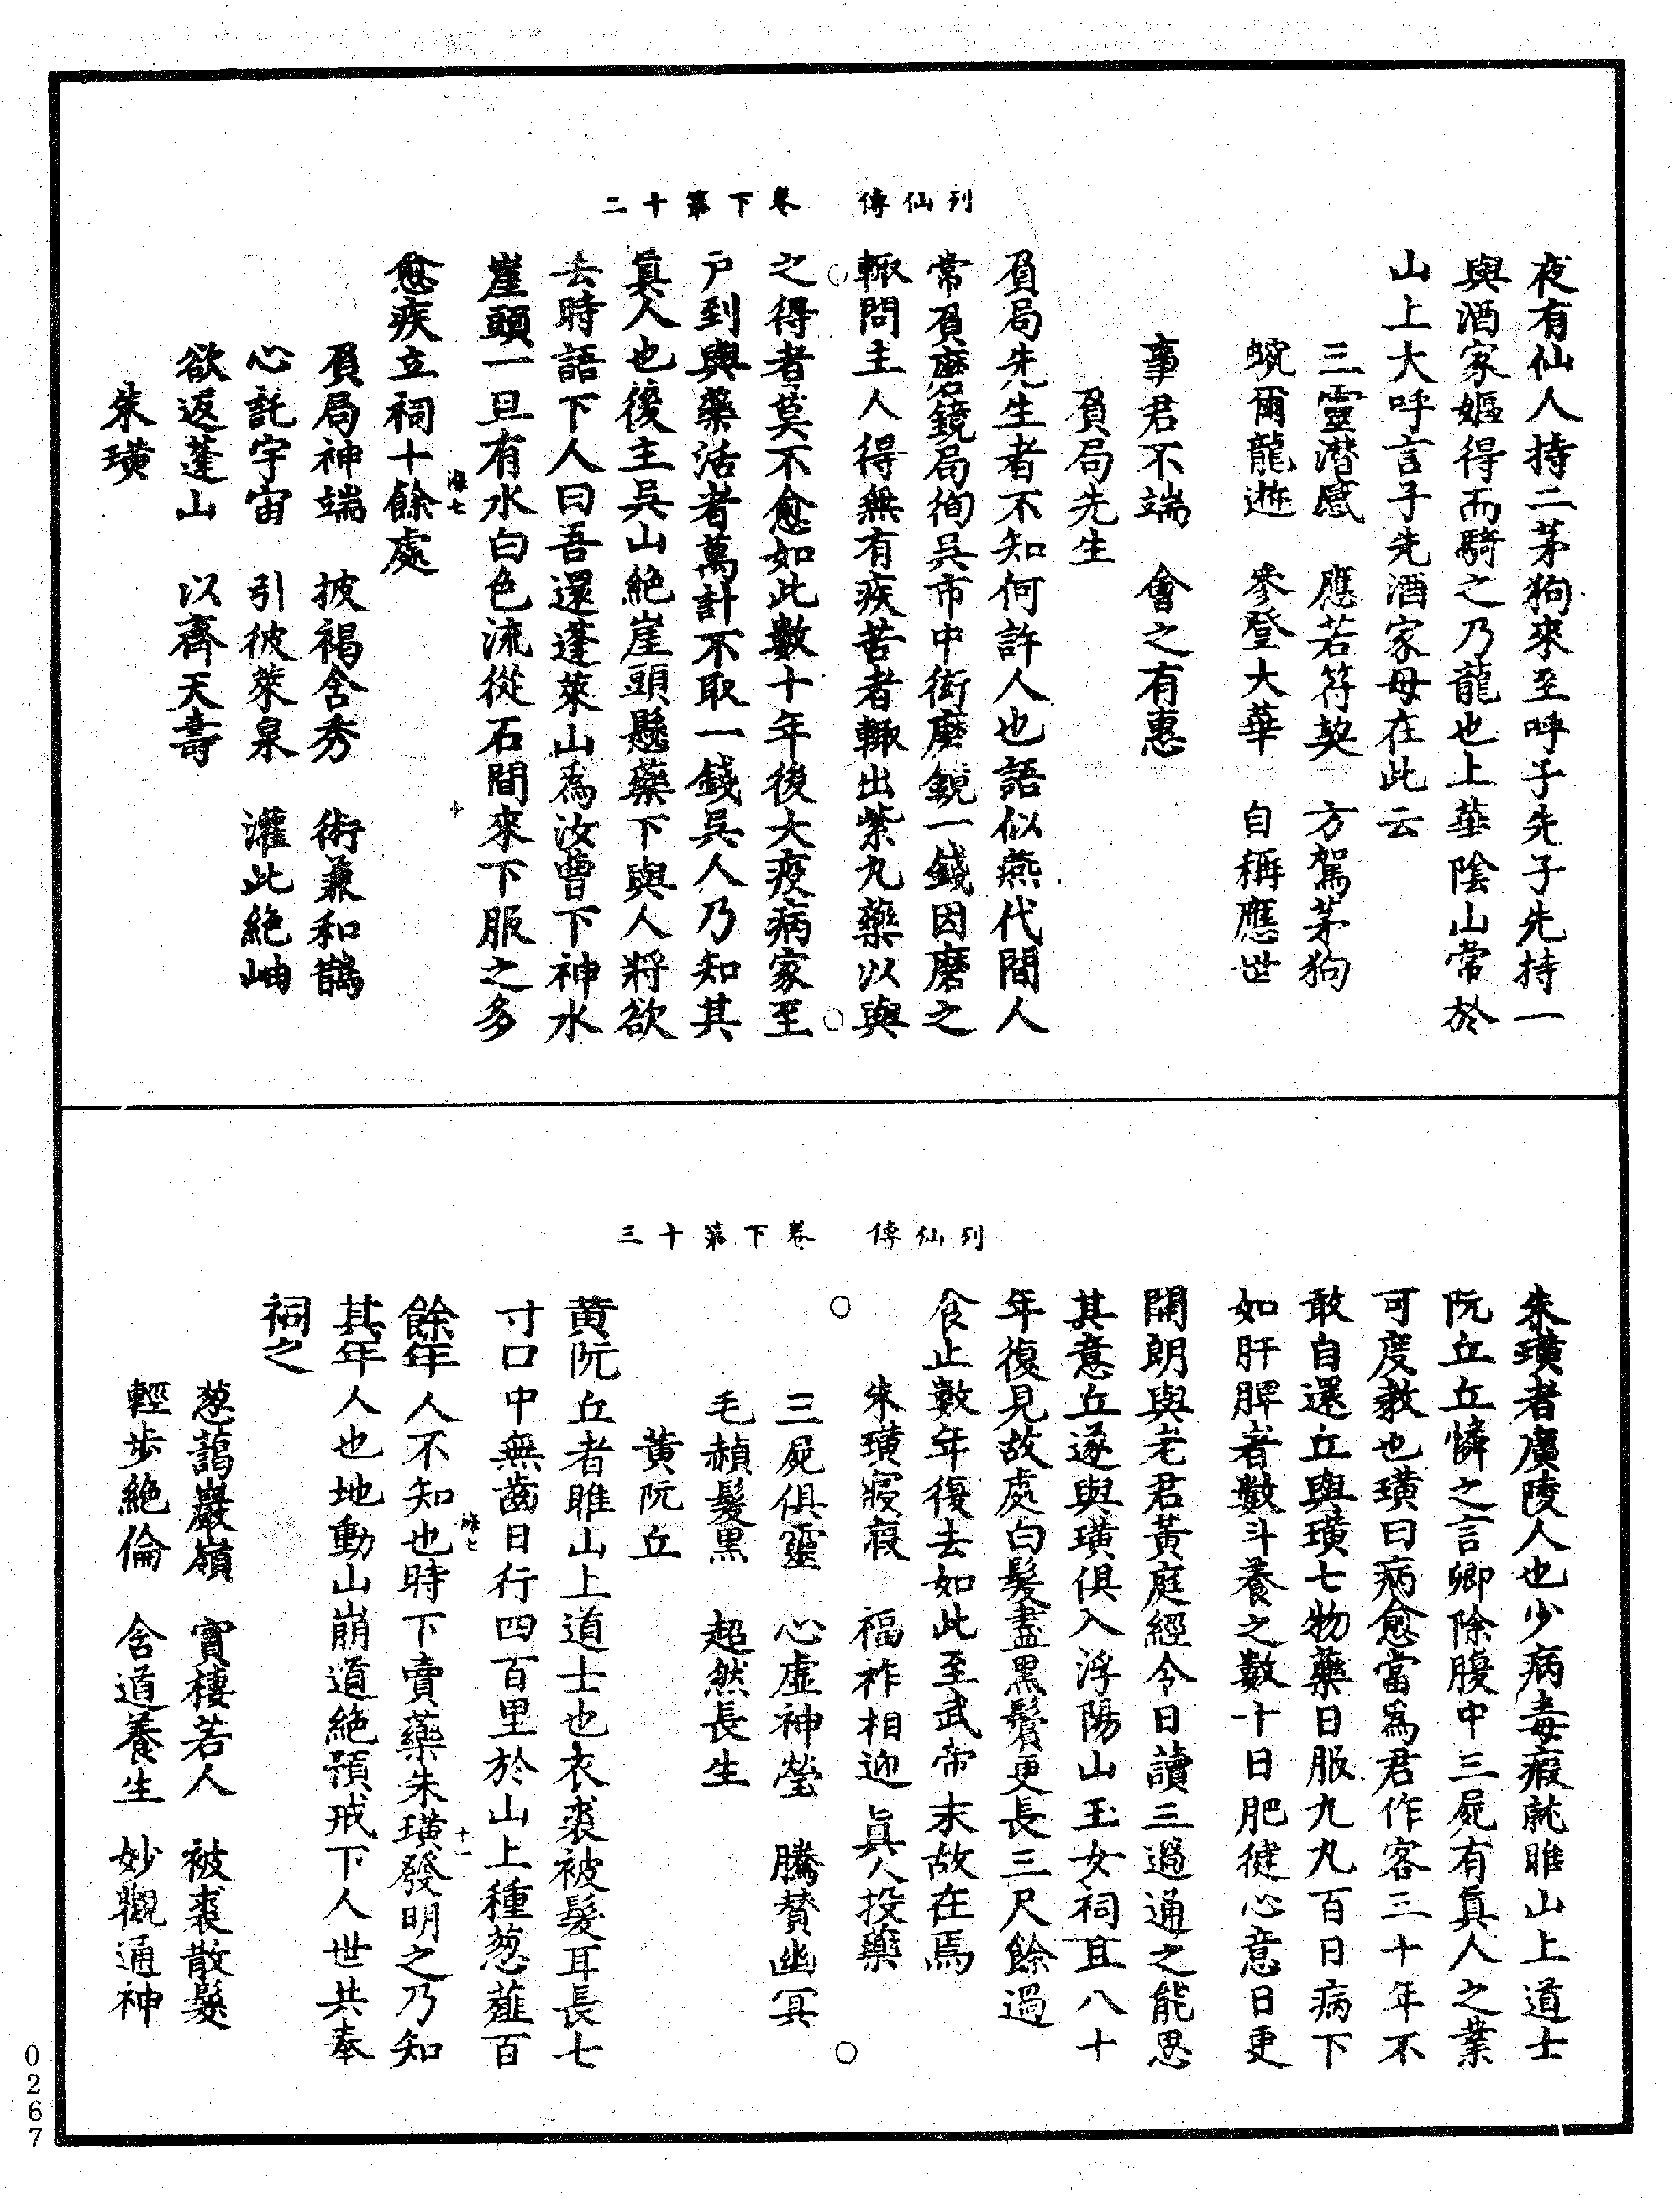 列仙傳　卷下第十二
夜有仙人持二茅狗來至呼子先子先持一
與酒家嫗得而騎之乃龍也上華陰山常於
山上大呼言子先酒家母在此云
三靈潜感　應若符契　方駕茅狗
蜿爾龍逝　參登大華　自稱應世
事君不端　會之有惠
負局先生
負局先生者不知何許人也語似燕代間人
常負磨鏡局徇吳市中衒磨鏡一錢因磨之
輙問主人得無有疾苦者輙出紫丸藥以與
之得者莫不愈如此數十年後大疫病家至
戶到與藥活者萬計不取一錢吳人乃知其
眞人也後主吳山絕崖頭懸藥下與人將欲
去時語下人曰吾還蓬萊山爲汝曹下神水
崖頭一旦有水白色流從石間來下服之多
海七　十
愈疾立祠十餘處
負局神端　披褐含秀　術兼和鵲
心託宇宙　引彼萊泉　灌此絕岫
欲返蓬山　以齊天壽
朱璜
列仙傳　卷下第十三
朱璜者廣陵人也少病毒瘕就睢山上道士
阮丘丘憐之言卿除腹中三屍有眞人之業
可度教也璜曰病愈當爲君作客三十年不
敢自還丘與璜七物藥日服九丸百日病下
如肝脾者數斗養之數十日肥健心意日更
開朗與老君黃庭經令日讀三過通之能思
其意丘遂與璜俱入浮陽山玉女祠且八十
年復見故處白髮盡黑鬢更長三尺餘過
食止數年復去如此至武帝末故在焉
朱璜寢瘕　福祚相迎　眞人投藥
三屍俱靈　心虛神瑩　騰贊幽冥
毛赬髮黑　超然長生
黃阮丘
黃阮丘者睢山上道士也衣裘被髮耳長七
寸口中無齒日行四百里於山上種葱薤百
海七　十一
餘年人不知也時下賣藥朱璜發明之乃知
其年人也地動山崩道絕預戒下人世共奉
祠之
葱藹巖嶺　實棲若人　被裘散髮
輕步絕倫　含道養生　妙觀通神
0267